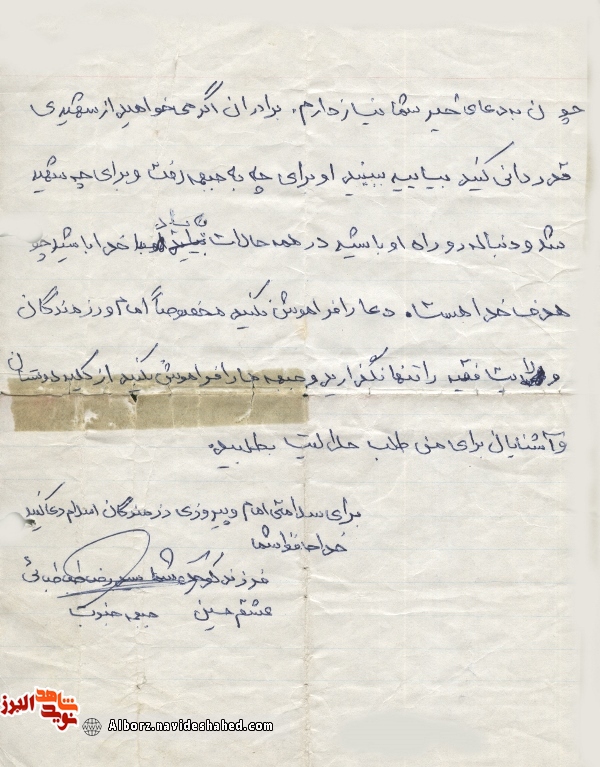 چون به دعای خیر شما نیاز دارم. برادران اگر می خواهید از شهیدی
قدردانی کنید بیایید ببینید او برای چه به جبهه رفت و برای چه شهید
شد و دنباله رو راه او باشید در همه حالات با خدا باشید چو
هدف خدا هست. دعا را فراموش نکنید مخصوصاً امام و رزمندگان
و ولایت فقیه را تنها نگذارید و جبهه ها را فراموش نکنید از کلیه دوستان
و آشنایان برای من طلب حلالیت بطلبید.
برای سلامتی امام و پیروزی رزمندگان اسلام دعا کنید
خدا حافظ شما
فرزند کوچک شما سید رضا طباطبائی
عشقم حسین جبهه جنوب
شاهد نوید البرز
Alborz.navideshahed.com